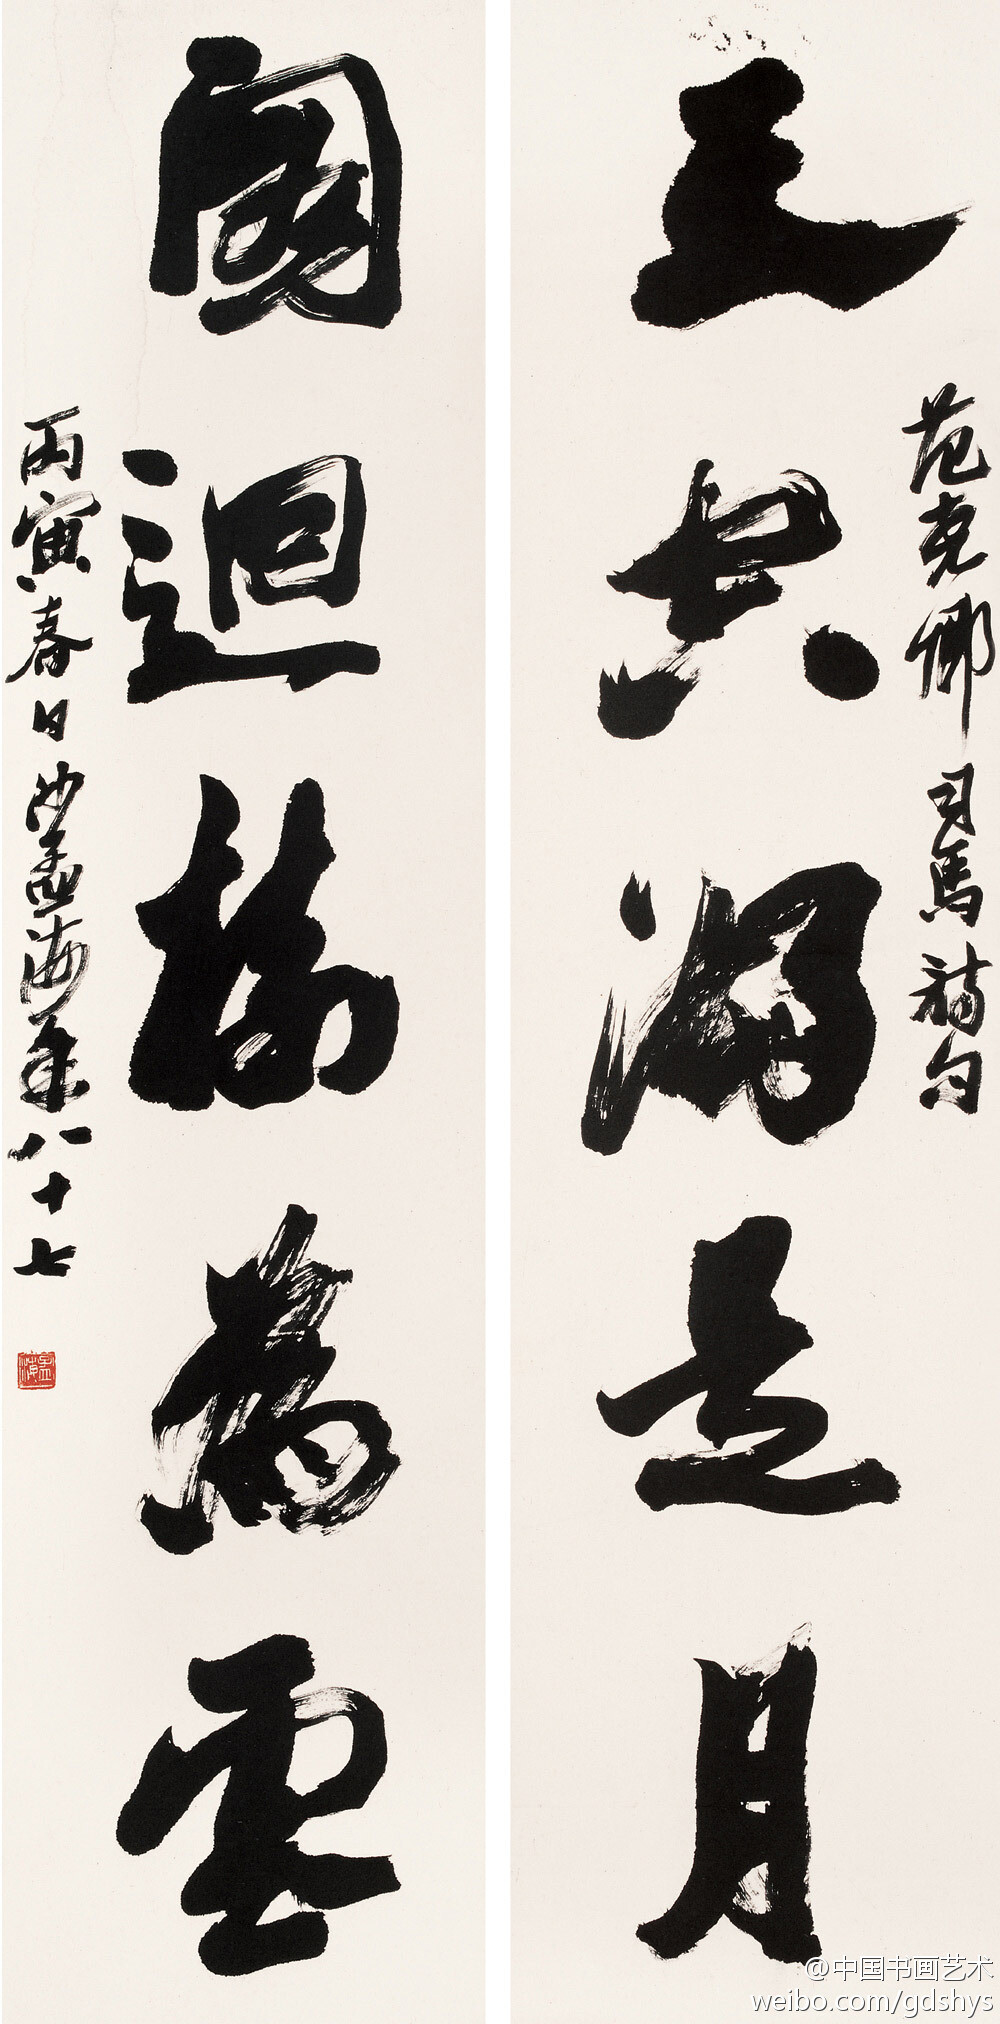 湖是月
范克卿司馬句
迴樹為雲
丙寅春日沙孟海年八十七
孟海
@中国书画艺术
weibo.com/gdshys